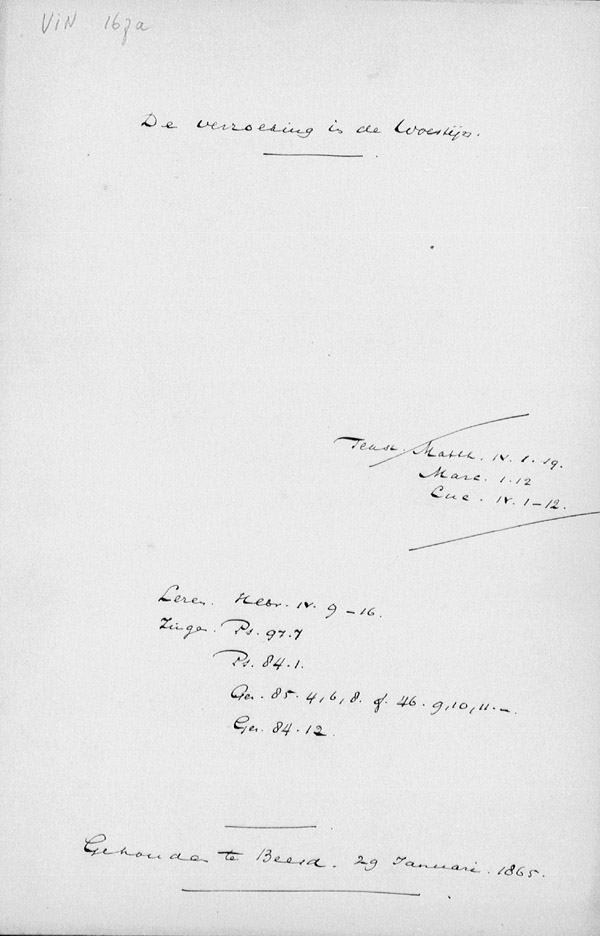 VIN 167a
De verzoeking in de Woestijn.
Tekst. Matth. IV. 1-19.
Marc. 1.12
Luc. IV. 1-12.
Lezen. Hebr. IV. 9-16.
Zingen. Ps. 97.7
Ps. 84.1.
Gez. 85. 4, 6, 8. of. 46. 9, 10, 11. -.
Gez. 84. 12.
Gehouden te Beesd. 29 Januari. 1865.